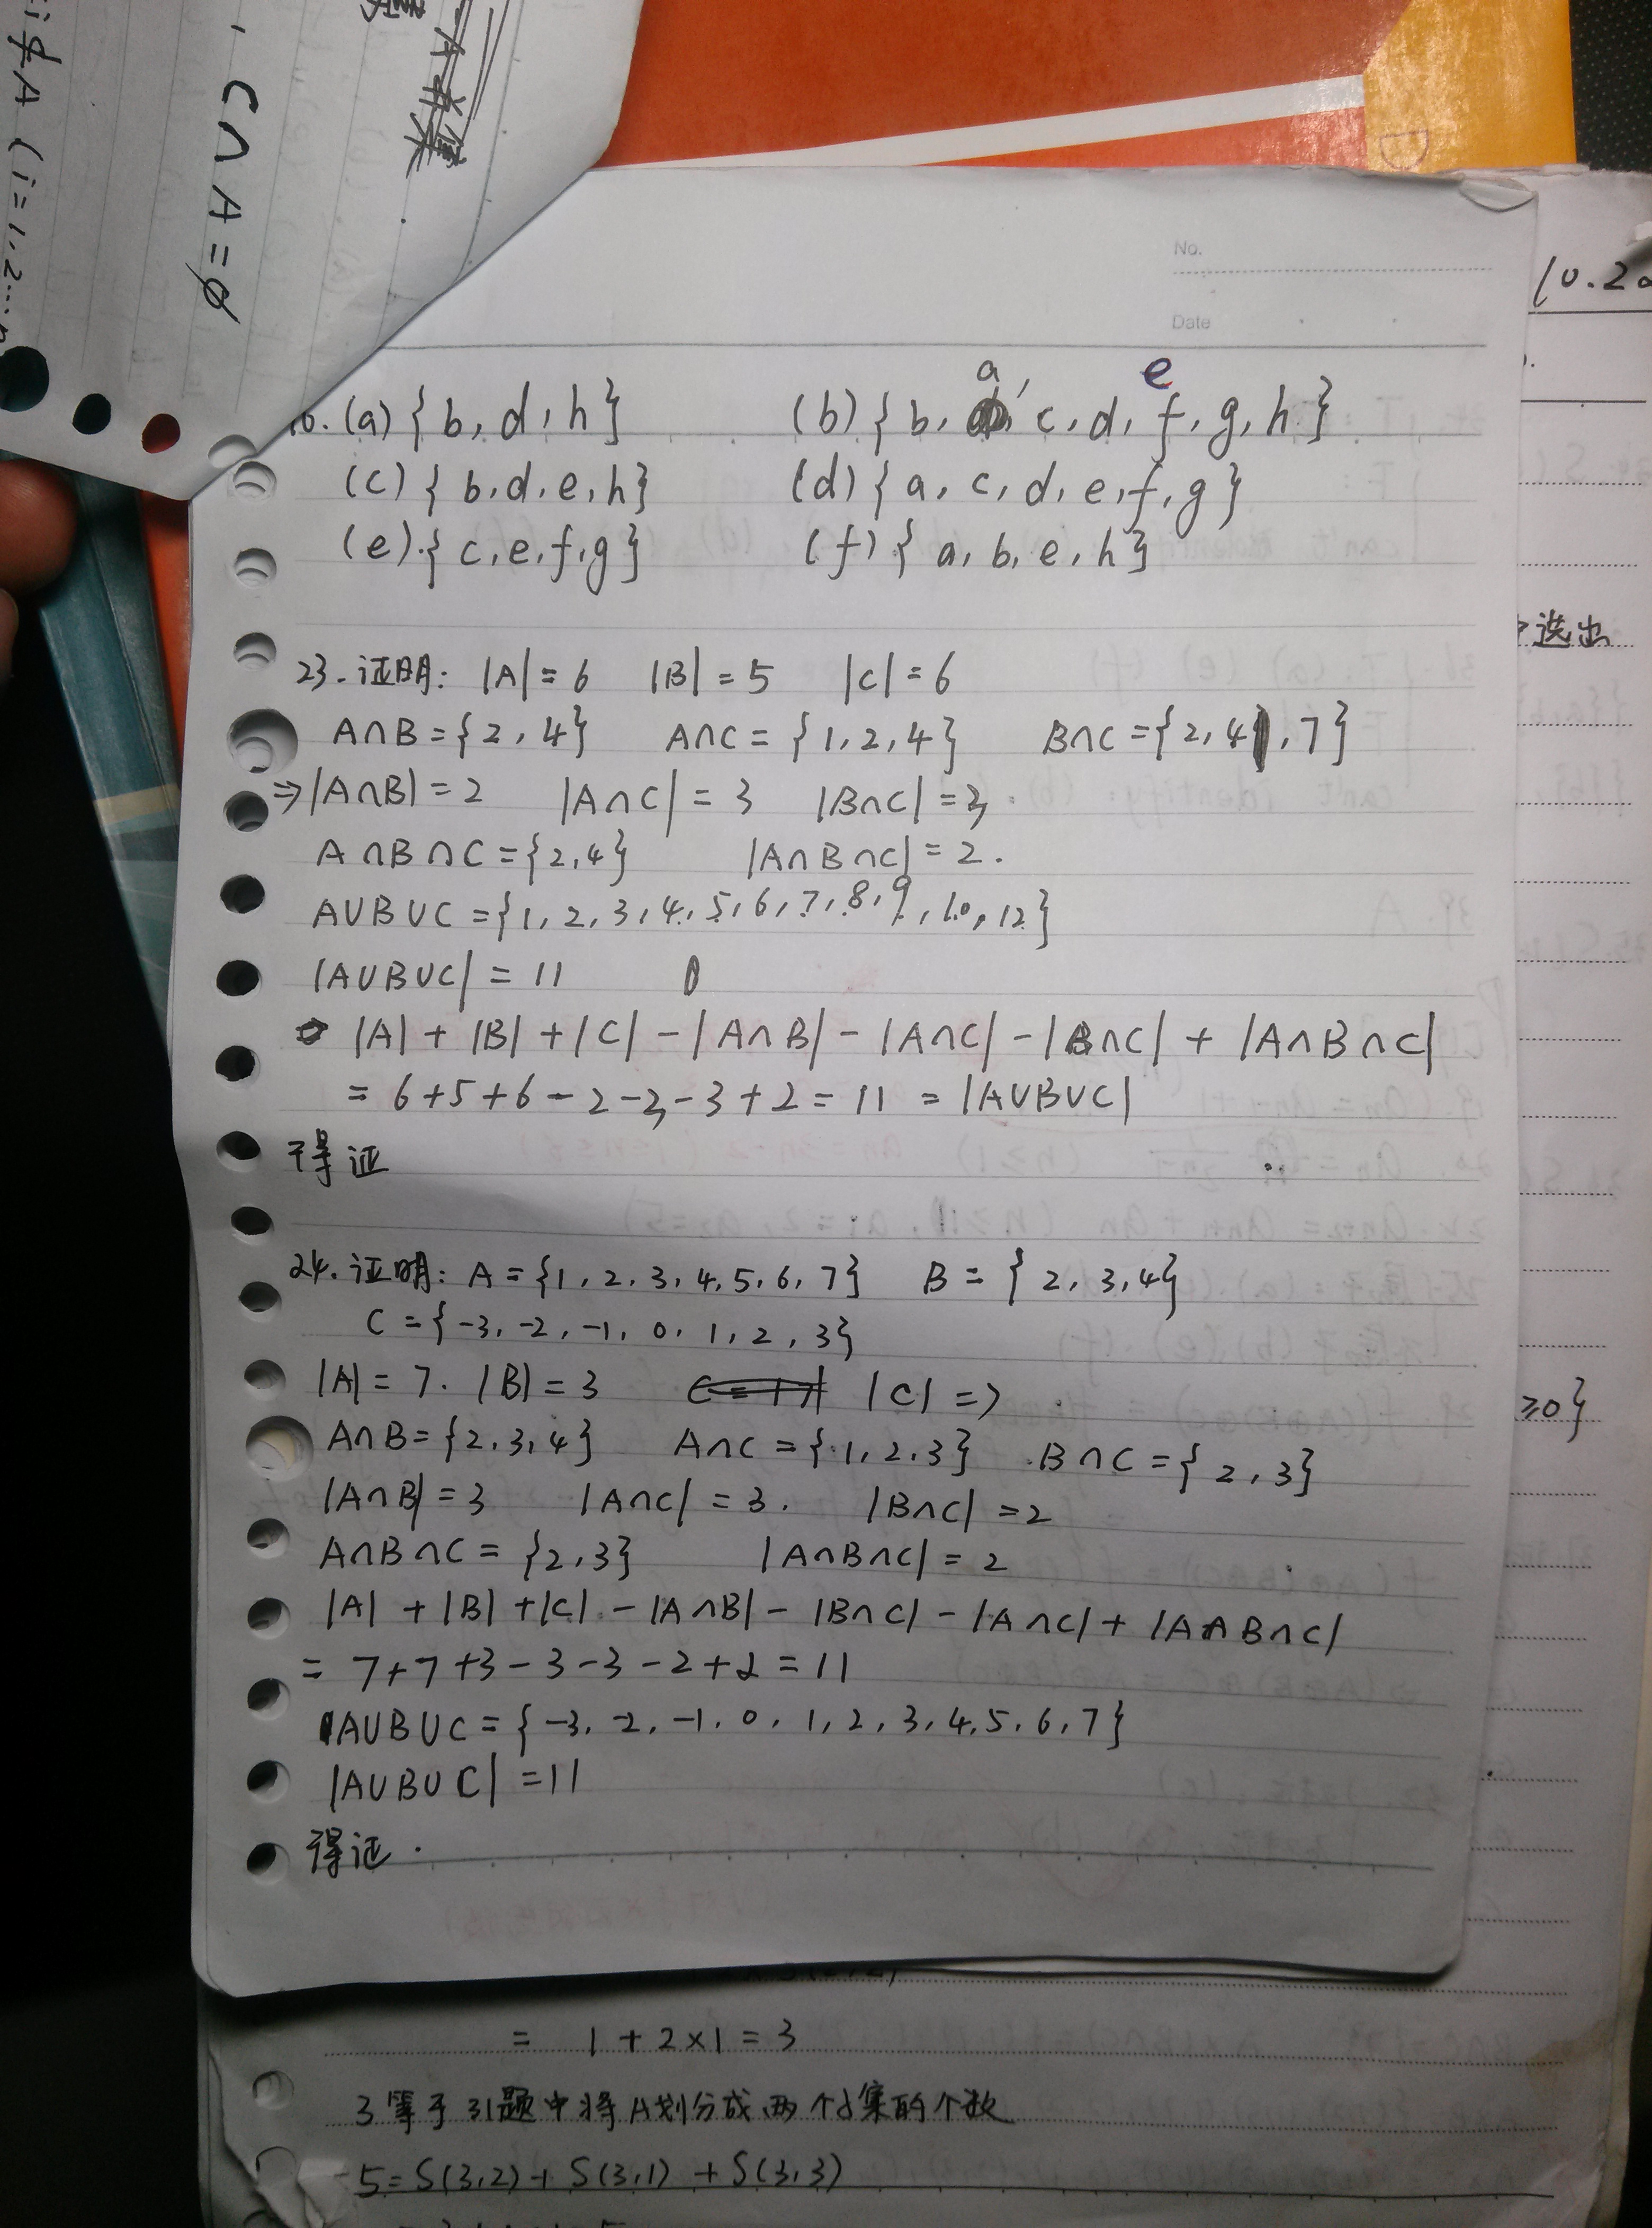 i∉A (i=1,2...n
, C∩A=∅
No.
Date
10.20
6. (a) {b, d, h} (b) {b, a, c, d, e, f, g, h}
(c) {b, d, e, h} (d) {a, c, d, e, f, g}
(e) {c, e, f, g} (f) {a, b, e, h}
选出
23. 证明: |A|=6 |B|=5 |C|=6
A∩B={2,4} A∩C={1,2,4} B∩C={2,4,7}
⇒|A∩B|=2 |A∩C|=3 |B∩C|=3
A∩B∩C={2,4} |A∩B∩C|=2.
A∪B∪C={1,2,3,4,5,6,7,8,9,10,12}
|A∪B∪C|=11
|A|+|B|+|C|-|A∩B|-|A∩C|-|B∩C|+|A∩B∩C|
=6+5+6-2-3-3+2=11=|A∪B∪C|
得证
24. 证明: A={1,2,3,4,5,6,7} B={2,3,4}
C={-3,-2,-1,0,1,2,3}
|A|=7. |B|=3 |C|=7
≥0}
A∩B={2,3,4} A∩C={1,2,3} B∩C={2,3}
|A∩B|=3 |A∩C|=3. |B∩C|=2
A∩B∩C={2,3} |A∩B∩C|=2
|A|+|B|+|C|-|A∩B|-|B∩C|-|A∩C|+|A∩B∩C|
=7+7+3-3-3-2+2=11
A∪B∪C={-3,-2,-1,0,1,2,3,4,5,6,7}
|A∪B∪C|=11
得证.
= 1+2×1=3
3等于31题中将A划分成两个子集的个数
5=S(3,2)+S(3,1)+S(3,3)